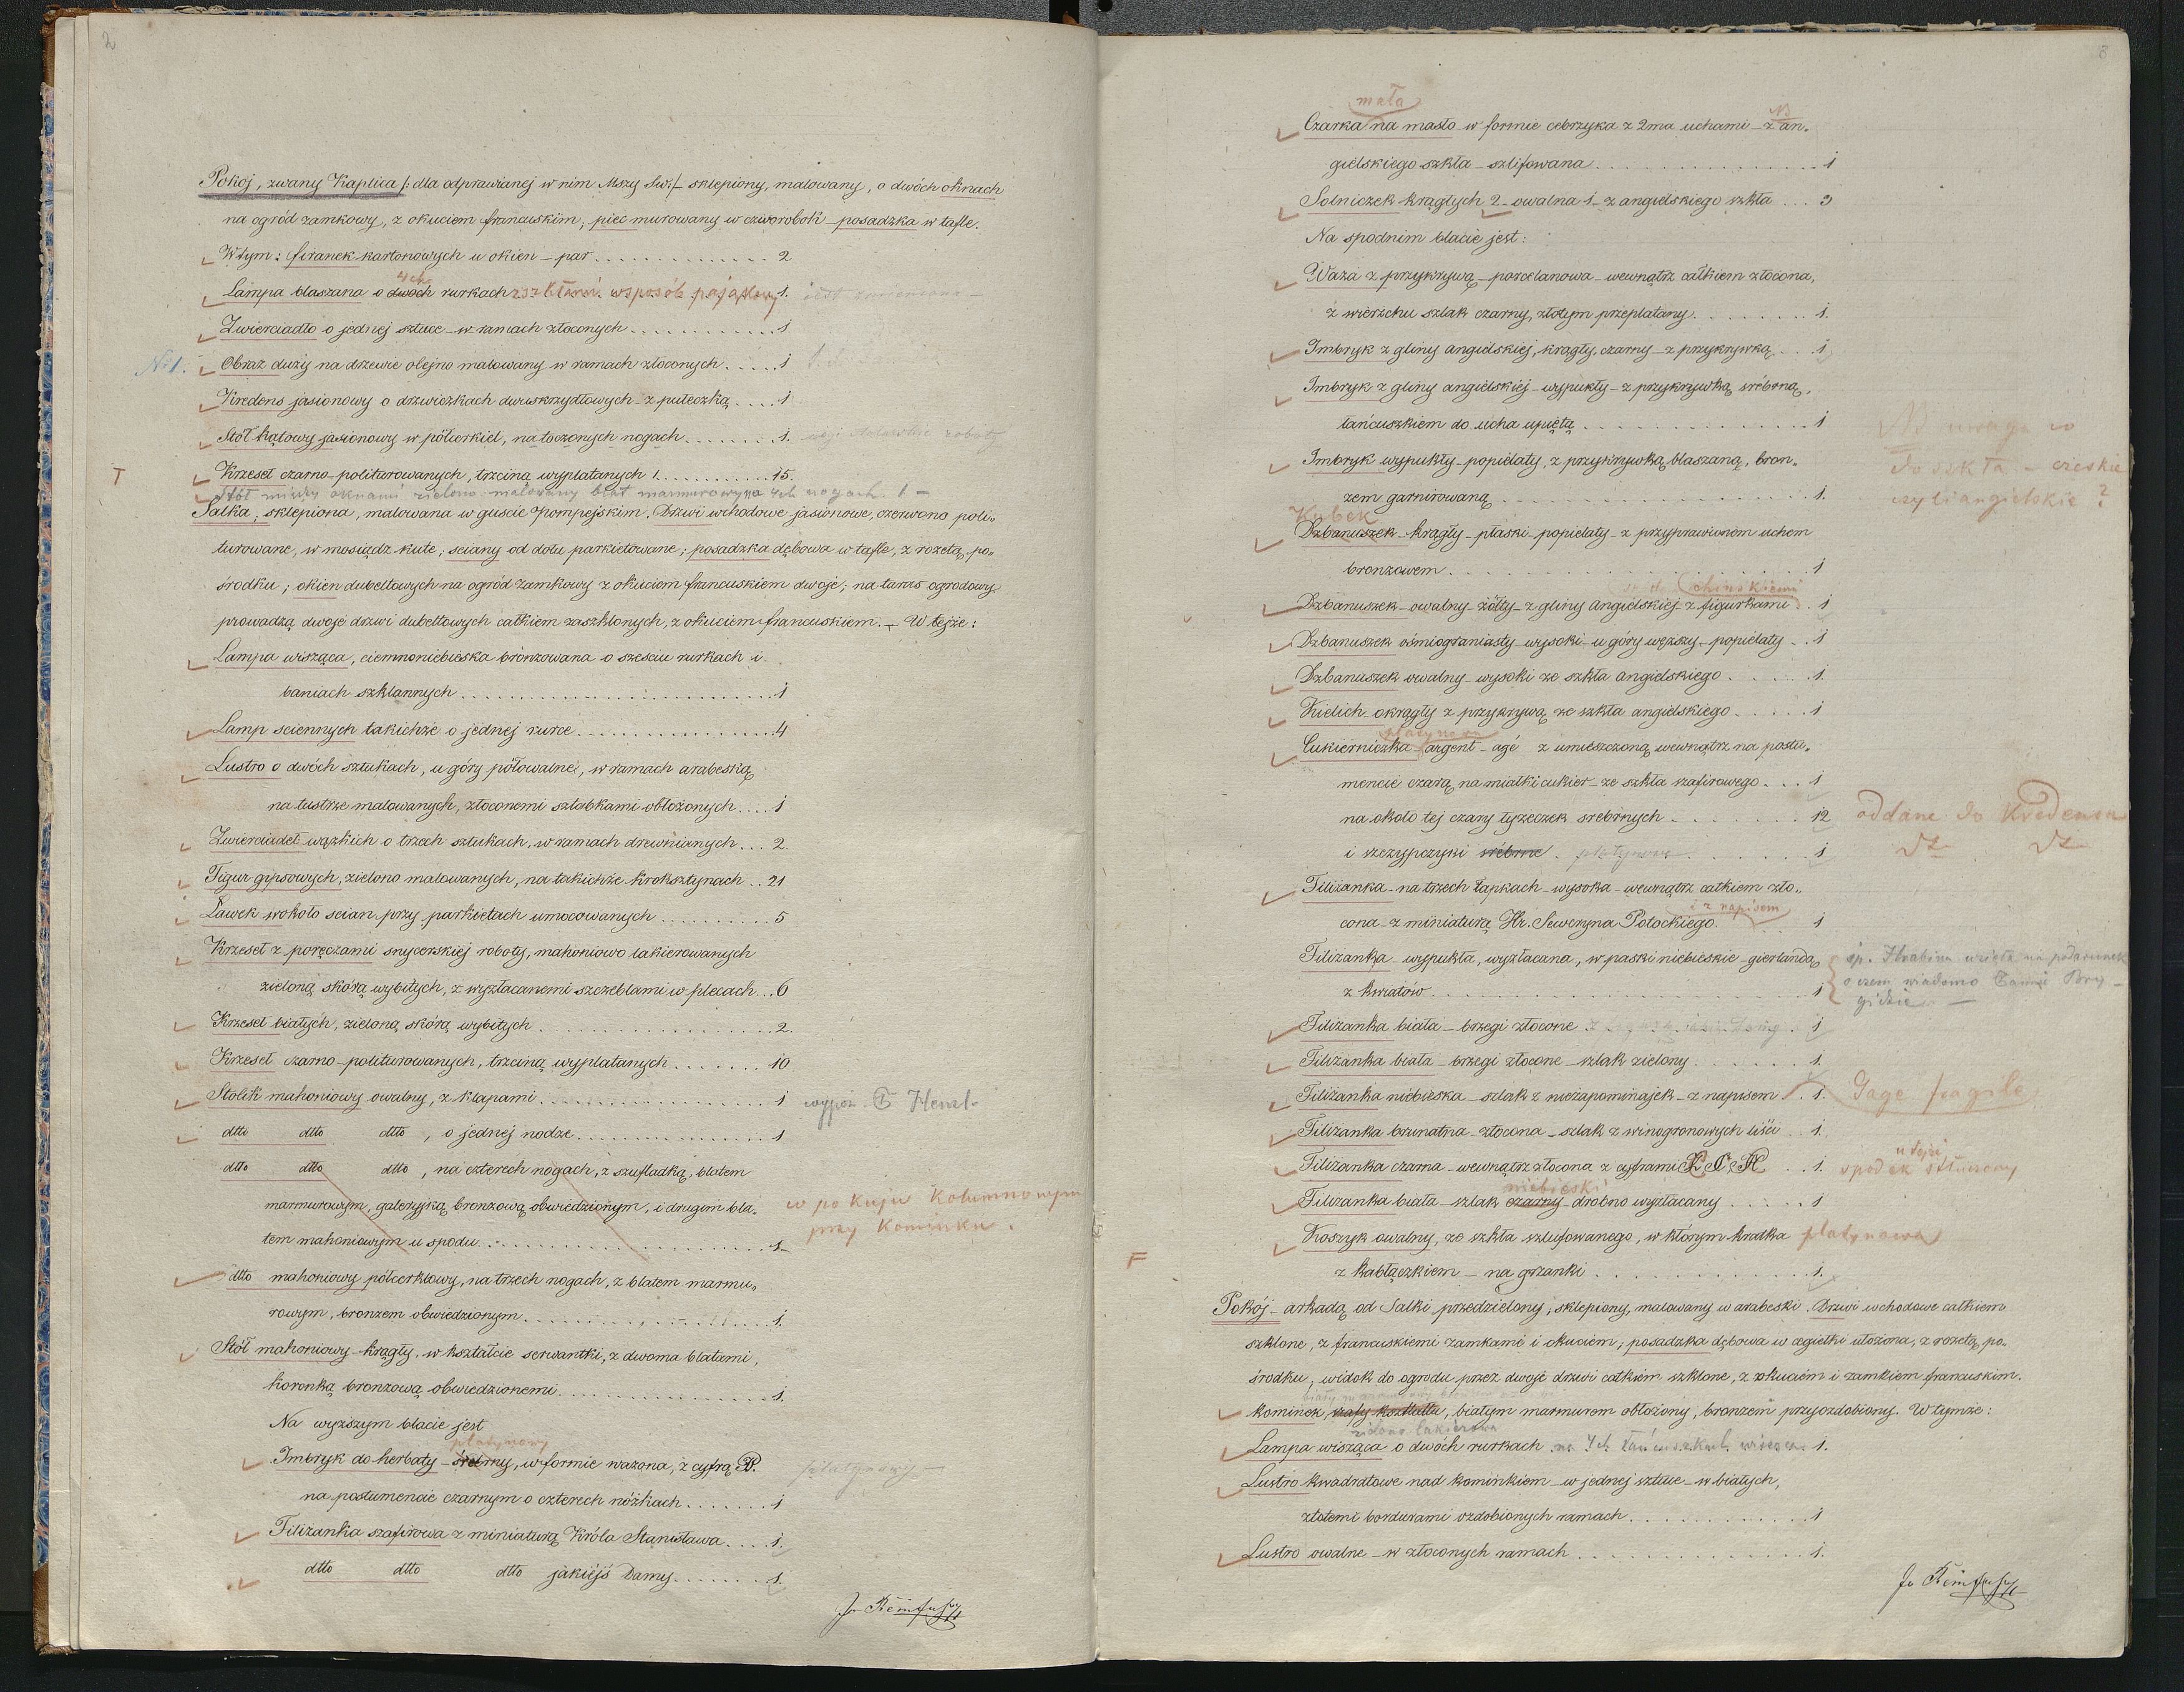 2
Pokój, zwany Kaplica /: dla odprawianej w nim Mszy Sw:/ – sklepiony, malowany, o dwóch oknach
na ogród zamkowy, z okuciem francuskim; piec murowany w czworobok – posadzka w tafle.
W tym: firanek kartonowych u okien – par . . . 2
4ch
Lampa blaszana o dwoch rurkach z szkłami w sposób pająkowy 1. jest
Zwierciadło o jednej sztuce – w ramach złoconych . . . 1
N 1. Obraz duży na drzewie olejno malowany w ramach złoconych . . . 1
Kredens jasionowy o drzwiczkach dwuskrzydłowych – z puteczką . . . 1
Stół kątowy jasionowy w półcerkiel, na toczonych nogach . . . 1. roboty
T Krzeseł czarno-politurowanych, trzciną wyplatanych 1. . . . 15.
Stół między oknami zielono malowany blat marmurowy na 4ch nogach. 1 –
Salka; sklepiona, malowana w guscie Pompejskim. Drzwi wchodowe jasionowe, czerwono poli„
turowane, w mosiądz kute; sciany od dołu parkietowane; posadzka dębowa w tafle, z rozetą po„
środku; okien dubeltowych na ogród zamkowy z okuciem francuskiem dwoje; na taras ogrodowy
prowadzą dwoje drzwi dubeltowych całkiem zaszklonych, z okuciem francuskiem. – W tejże:
Lampa wisząca, ciemnoniebieska bronzowana o szesciu rurkach i
baniach szklannych . . . 1
Lamp sciennych takichże o jednej rurce . . . 4
Lustro o dwóch sztukach, u góry półowalne, w ramach arabeską
na lustrze malowanych, złoconemi sztabkami obłożonych . . . 1
Zwierciadeł wązkich o trzech sztukach, w ramach drewnianych . . . 2
Figur gipsowych, zielono malowanych, na takichże kroksztynach . . 21
Ławek wokoło scian przy parkietach umocowanych . . . 5
Krzeseł z poręczami snycerskiej roboty, mahoniowo lakierowanych
zieloną skórą wybitych, z wyzłacanemi szczeblami w plecach . . . 6
Krzeseł białych, zieloną skórą wybitych . . . 2.
Krzeseł czarno-politurowanych, trzciną wyplatanych . . . 10
Stolik mahoniowy owalny, z klapami . . . 1 wypoż.
dtto dtto dtto, o jednej nodze . . . 1
dtto dtto dtto, na czterech nogach, z szufladką, blatem
marmurowym, galeryjką bronzową obwiedzionym, i drugim bla„ w pokuju Kolumnowym
tem mahoniowym u spodu . . . 1 przy Kominku.
dtto mahoniowy półcerklowy, na trzech nogach, z blatem marmu„
rowym, bronzem obwiedzionym . . . 1.
Stół mahoniowy – krągły, w kształcie serwantki, z dwoma blatami,
koronką bronzową obwiedzionemi . . . 1.
Na wyższym blacie jest
platynowy
Imbryk do herbaty – śrebrny, w formie wazona, z cyfrą P. platynowy –
na postumencie czarnym o czterech nóżkach . . . 1
Filiżanka szafirowa z miniaturą Króla Stanisława . . . 1.
dtto dtto dtto jakiejś Damy . . . 1.
3
mała
Czarka na masło w formie cebrzyka z 2ma uchami – z an„
gielskiego szkła – szlifowana . . . 1
Solniczek krągłych 2 – owalna 1 – z angielskiego szkła . . . 3
Na spodnim blacie jest:
Waza z przykrywą – porcelanowa – wewnątrz całkiem złocona,
z wierzchu szlak czarny, złotym przeplatany . . . 1.
Imbryk z gliny angielskiej, krągły, czarny – z przykrywką . . . 1
Imbryk z gliny angielskiej – wypukły – z przykrywką śrébrną,
łańcuszkiem do ucha upiętą . . . 1 uwaga co
Imbryk wypukły – popielaty, z przykrywką blaszaną, bron„ do szkła – czeskie
zem garnirowaną . . . 1. czyli angielskie ?
Kubek
Dzbanuszek – krągły – płaski – popielaty – z przyprawionem uchem
bronzowem . . . 1
chińskiemi
Dzbanuszek – owalny – żółty – z gliny Angielskiej – z figurkami . 1
Dzbanuszek ośmiograniasty – wysoki – u góry węższy – popielaty . . 1
Dzbanuszek owalny – wysoki ze szkła angielskiego . . . 1.
Kielich – okrągły z przykrywą ze szkła angielskiego . . . 1
platynowa
Cukierniczka – argent – agé z umieszczoną wewnątrz na postu„
mencie czarą na miałki cukier – ze szkła szafirowego . . . 1
na około tej czary łyżeczek srebrnych . . . 12 oddane do Kredensu
i szczypczyki srébrne . platynowe . . . 1 dt dt
Filiżanka – na trzech łapkach – wysoka – wewnątrz całkiem zło„
i z napisem
cona – z miniaturą Hr. Sewczyna Potockiego . . . 1
Filiżanka – wypukła, wyzłacana, w paski niebieskie – gierlandą śp. Hrabina wzięła na podarunek
z kwiatów . . . 1 o czem wiadomo Pannie Bry–
gidzie –
Filiżanka biała – brzegi złocone . . . 1
Filiżanka biała – brzegi złocone – szlak zielony . . . 1.
Filiżanka niebieska – szlak z niezapominajek – z napisem . 1. Gage fragile
Filiżanka brunatna – złocona – szlak z winogronowych liści . . 1.
Filiżanka czarna – wewnątrz złocona z cyframi . . 1. u tejże spodek stłuczony
niebieski
Filiżanka biała – szlak czarny – drobno wyzłacany . . . 1
F Koszyk owalny, ze szkła szlufowanego, w którym kratka platynowa
z kabłączkiem – na grzanki . . . 1.
Pokój – arkadą od Salki przedzielony; sklepiony, malowany w arabeski. Drzwi wchodowe całkiem
szklone, z francuskiemi zamkami i okuciem; posadzka dębowa w cegiełki ułożona, z rozetą po„
środku; widok do ogrodu przez dwoje drzwi całkiem szklone, z okuciem i zamkiem francuskim.
kominek szafy kształtu, białym marmurem obłożony, bronzem przyozdobiony. W tymże:
zielono lakierowa
Lampa wisząca o dwóch rurkach na 4ch łańcuszkach wisząca 1.
Lustro kwadratowe nad kominkiem – w jednej sztuce – w białych,
złotemi bordurami ozdobionych ramach . . . 1
Lustro owalne – w złoconych ramach . . . 1.